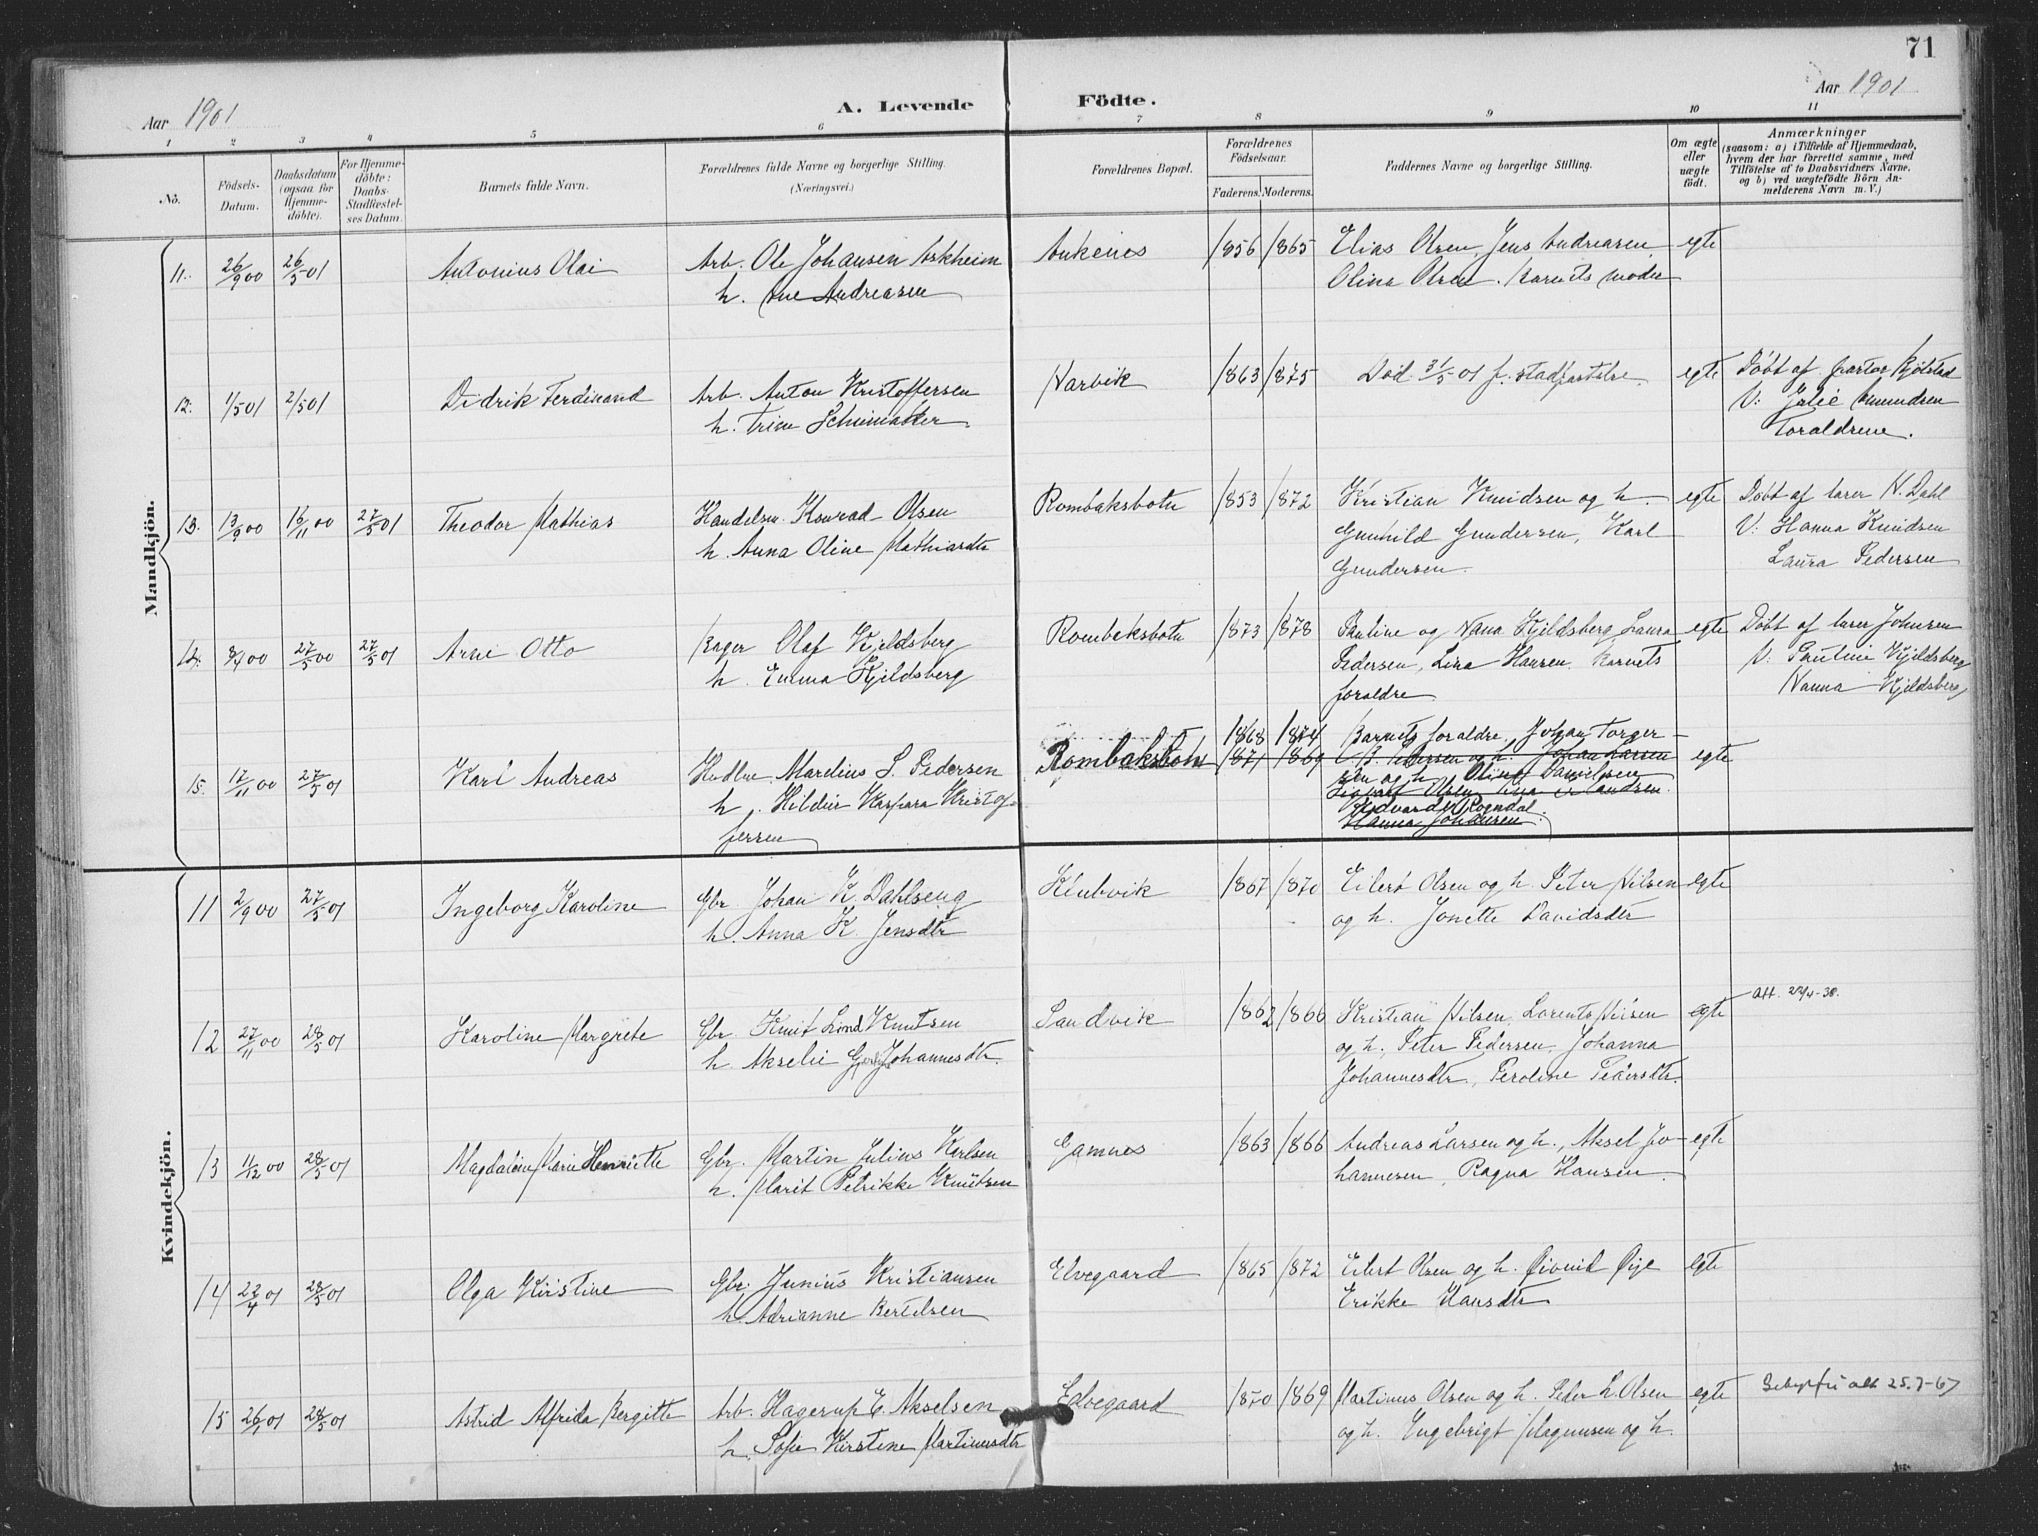 71
Aar 1901
A. Levende Födte.
Aar 1901
1 2 3 4 5 6 7 8 9 10 11
No.
Födsels-Datum.
Daabsdatum (ogsaa for Hjemme-döbte).
For Hjemme-döbte: Daabs-Stadfæstel-ses Datum.
Barnets fulde Navn.
Forældrenes fulde Navne og borgerlige Stilling.
(Næringsvei.)
Forældrenes Bopæl.
Forældrenes Födselsaar.
Faderens. Moderens.
Faddernes Navne og borgerlige Stilling.
Om ægte eller uægte födt.
Anmærkninger
(saasom: a) i Tilfælde af Hjemmedaab,
hvem der har forrettet samme, med
Tilföielse af to Daabsvidners Navne,
og b) ved uægtefödte Börn An-
melderens Navn m. V.)
Mandkjön.
11. 26/9 00 26/5 01 Antonius Olai Arb. Ole Johansen Askheim Ankenes 1856 1865 Elias Olsen, Jens Andreasen egte
h. Ane Andreasen Olina Olsen. Barnets moder
12. 1/5 01 2/5 01 Didrik Ferdinand Arb. Anton Kristoffersen Narvik 1863 1875 Död 31/5 01 f. stadfæstelse. egte Döbt af pastor Kjölstad
h. Trine Schumakker V: Julie Amundsen
Foraldrene.
13. 13/9 00 16/11 00 27/5 01 Theodor Mathias Handelsm. Konrad Olsen Rombaksbotn 1853 1872 Kristian Knudsen og h. egte Döbt af lærer N. Dahl
h. Anna Oline Mathiasdtr Gunhild Gundersen, Karl V: Hanna Knudsen
Gundersen. Laura Pedersen
14. 8/4 00 27/5 00 27/5 01 Arne Otto Bager Olaf Kjeldsberg Rombaksbotn 1873 1878 Pauline og Nana Kjeldsberg Laura egte Döbt af lærer Johnsen
h. Emma Kjeldsberg Pedersen, Lina Hansen, barnets V: Pauline Kjeldsberg
foraldre Nanna Kjeldsberg
15. 17/11 00 27/5 01 Karl Andreas Marelius S. Pedersen Rombaksbotn 1868 1874 Barnets foraldre, Johan Torger-
1871 1869 Pedersen og h. Johan Larsen egte
h. Hildur Kaspara Kristof- sen og h. Oline Danielsen
Olsen
fersen Edvard Rogndal.
Hanna Johansen
Kvindekjön.
11 2/9 00 27/5 01 Ingeborg Karoline Gbr. Johan K. Dahlseng Klubvik 1867 1870 Eilert Olsen og h. Peter Nilsen egte
h. Anna K. Jensdtr og h. Jonette Davidsdtr
att. 22/4-38.
12 27/11 00 28/5 01 Karoline Margrete Gbr. Knut Lind Knutsen Sandvik 1862 1866 Kristian Nilsen, Lorents Nilsen egte
h. Akselie Johannesdtr. og h., Peter Pedersen, Johanna
Johannesdtr, Peroline Pedersdtr.
13 11/12 00 28/5 01 Magdalene Marie Henriette Gbr. Martin Julius Karlsen Gamnes 1863 1866 Andreas Larsen og h., Aksel Jo- egte
h. Marit Petrikke Knutsen hannesen, Ragna Hansen
14 22/4 01 28/5 01 Olga Kirstine Gbr. Junius Kristiansen Elvegaard 1865 1872 Eilert Olsen og h. Öivind Öije egte
h. Adrianne Bertelsen Erikke Hansdtr
15 26/1 01 28/5 01 Astrid Alfrida Bergitte Arb. Hagerup E. Akselsen Elvegaard 1870 1869 Martinus Olsen og h. Peder L. Olsen egte Gebyrfri att 25.7-67
h. Sofie Kirstine Martinusdtr og h. Engebrigt Magnusen og h.